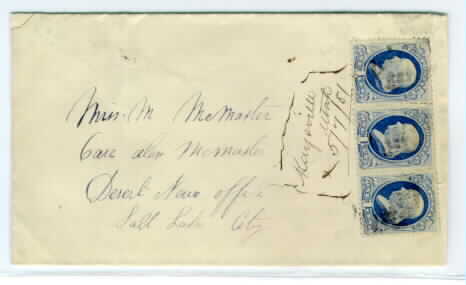 Miss M McMaster
Care Alex McMaster
Deseret News office
Salt Lake City
Kaysville
Utah
5/7/81